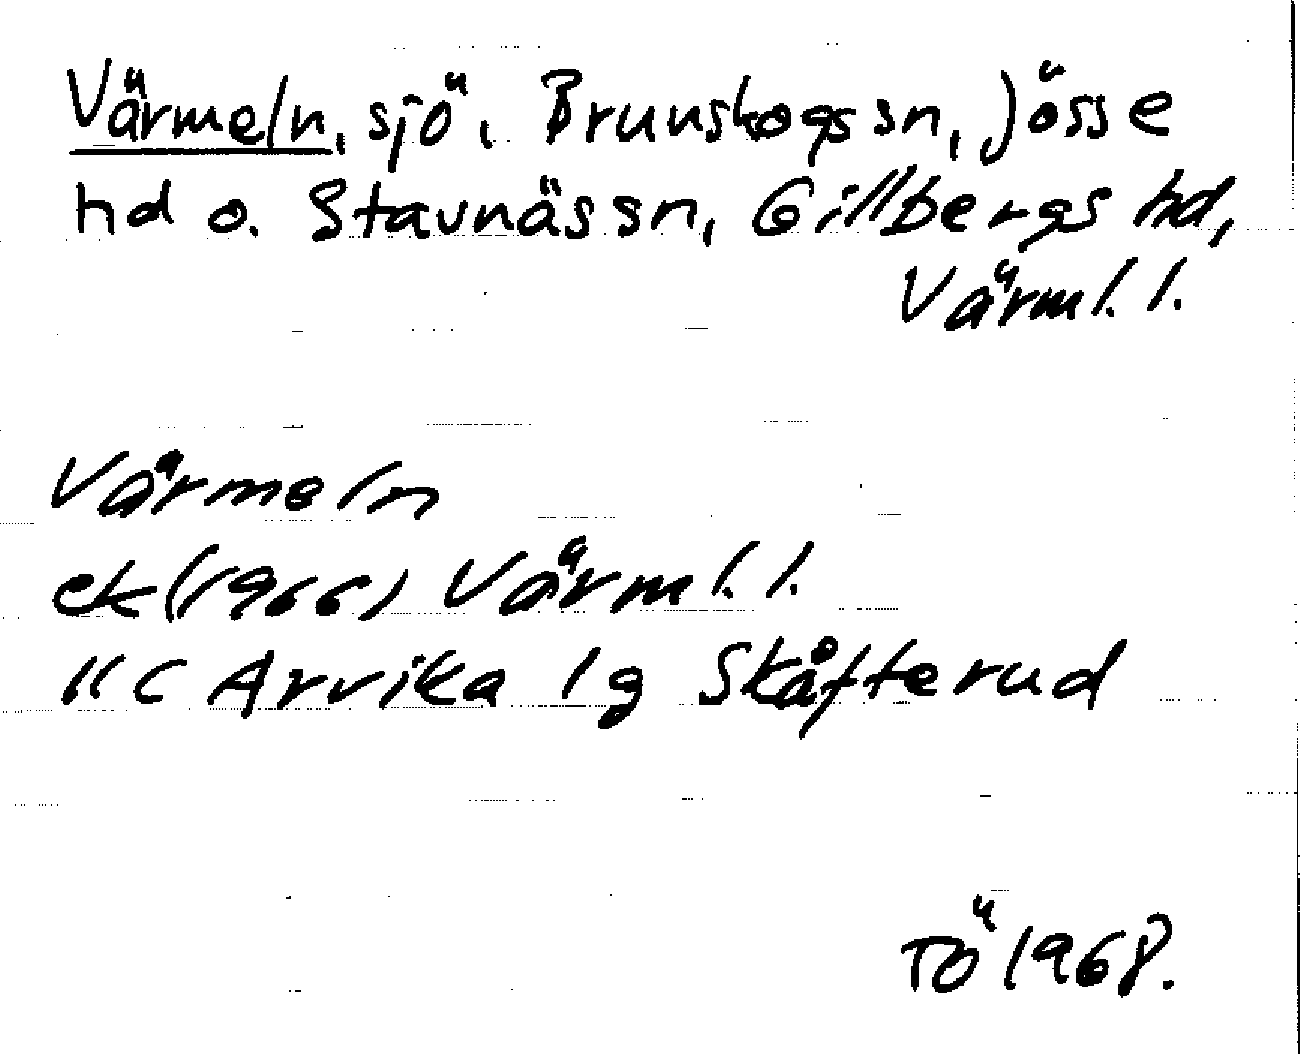 Värmeln, sjö. Brunskogs sn, Jösse
hd o. Stavnäs sn, Gillbergs hd,
Värml. l.
Värmeln
ek (1966) Värml. l.
11C Arvika 1g Skåfterud
TÖ 1968.